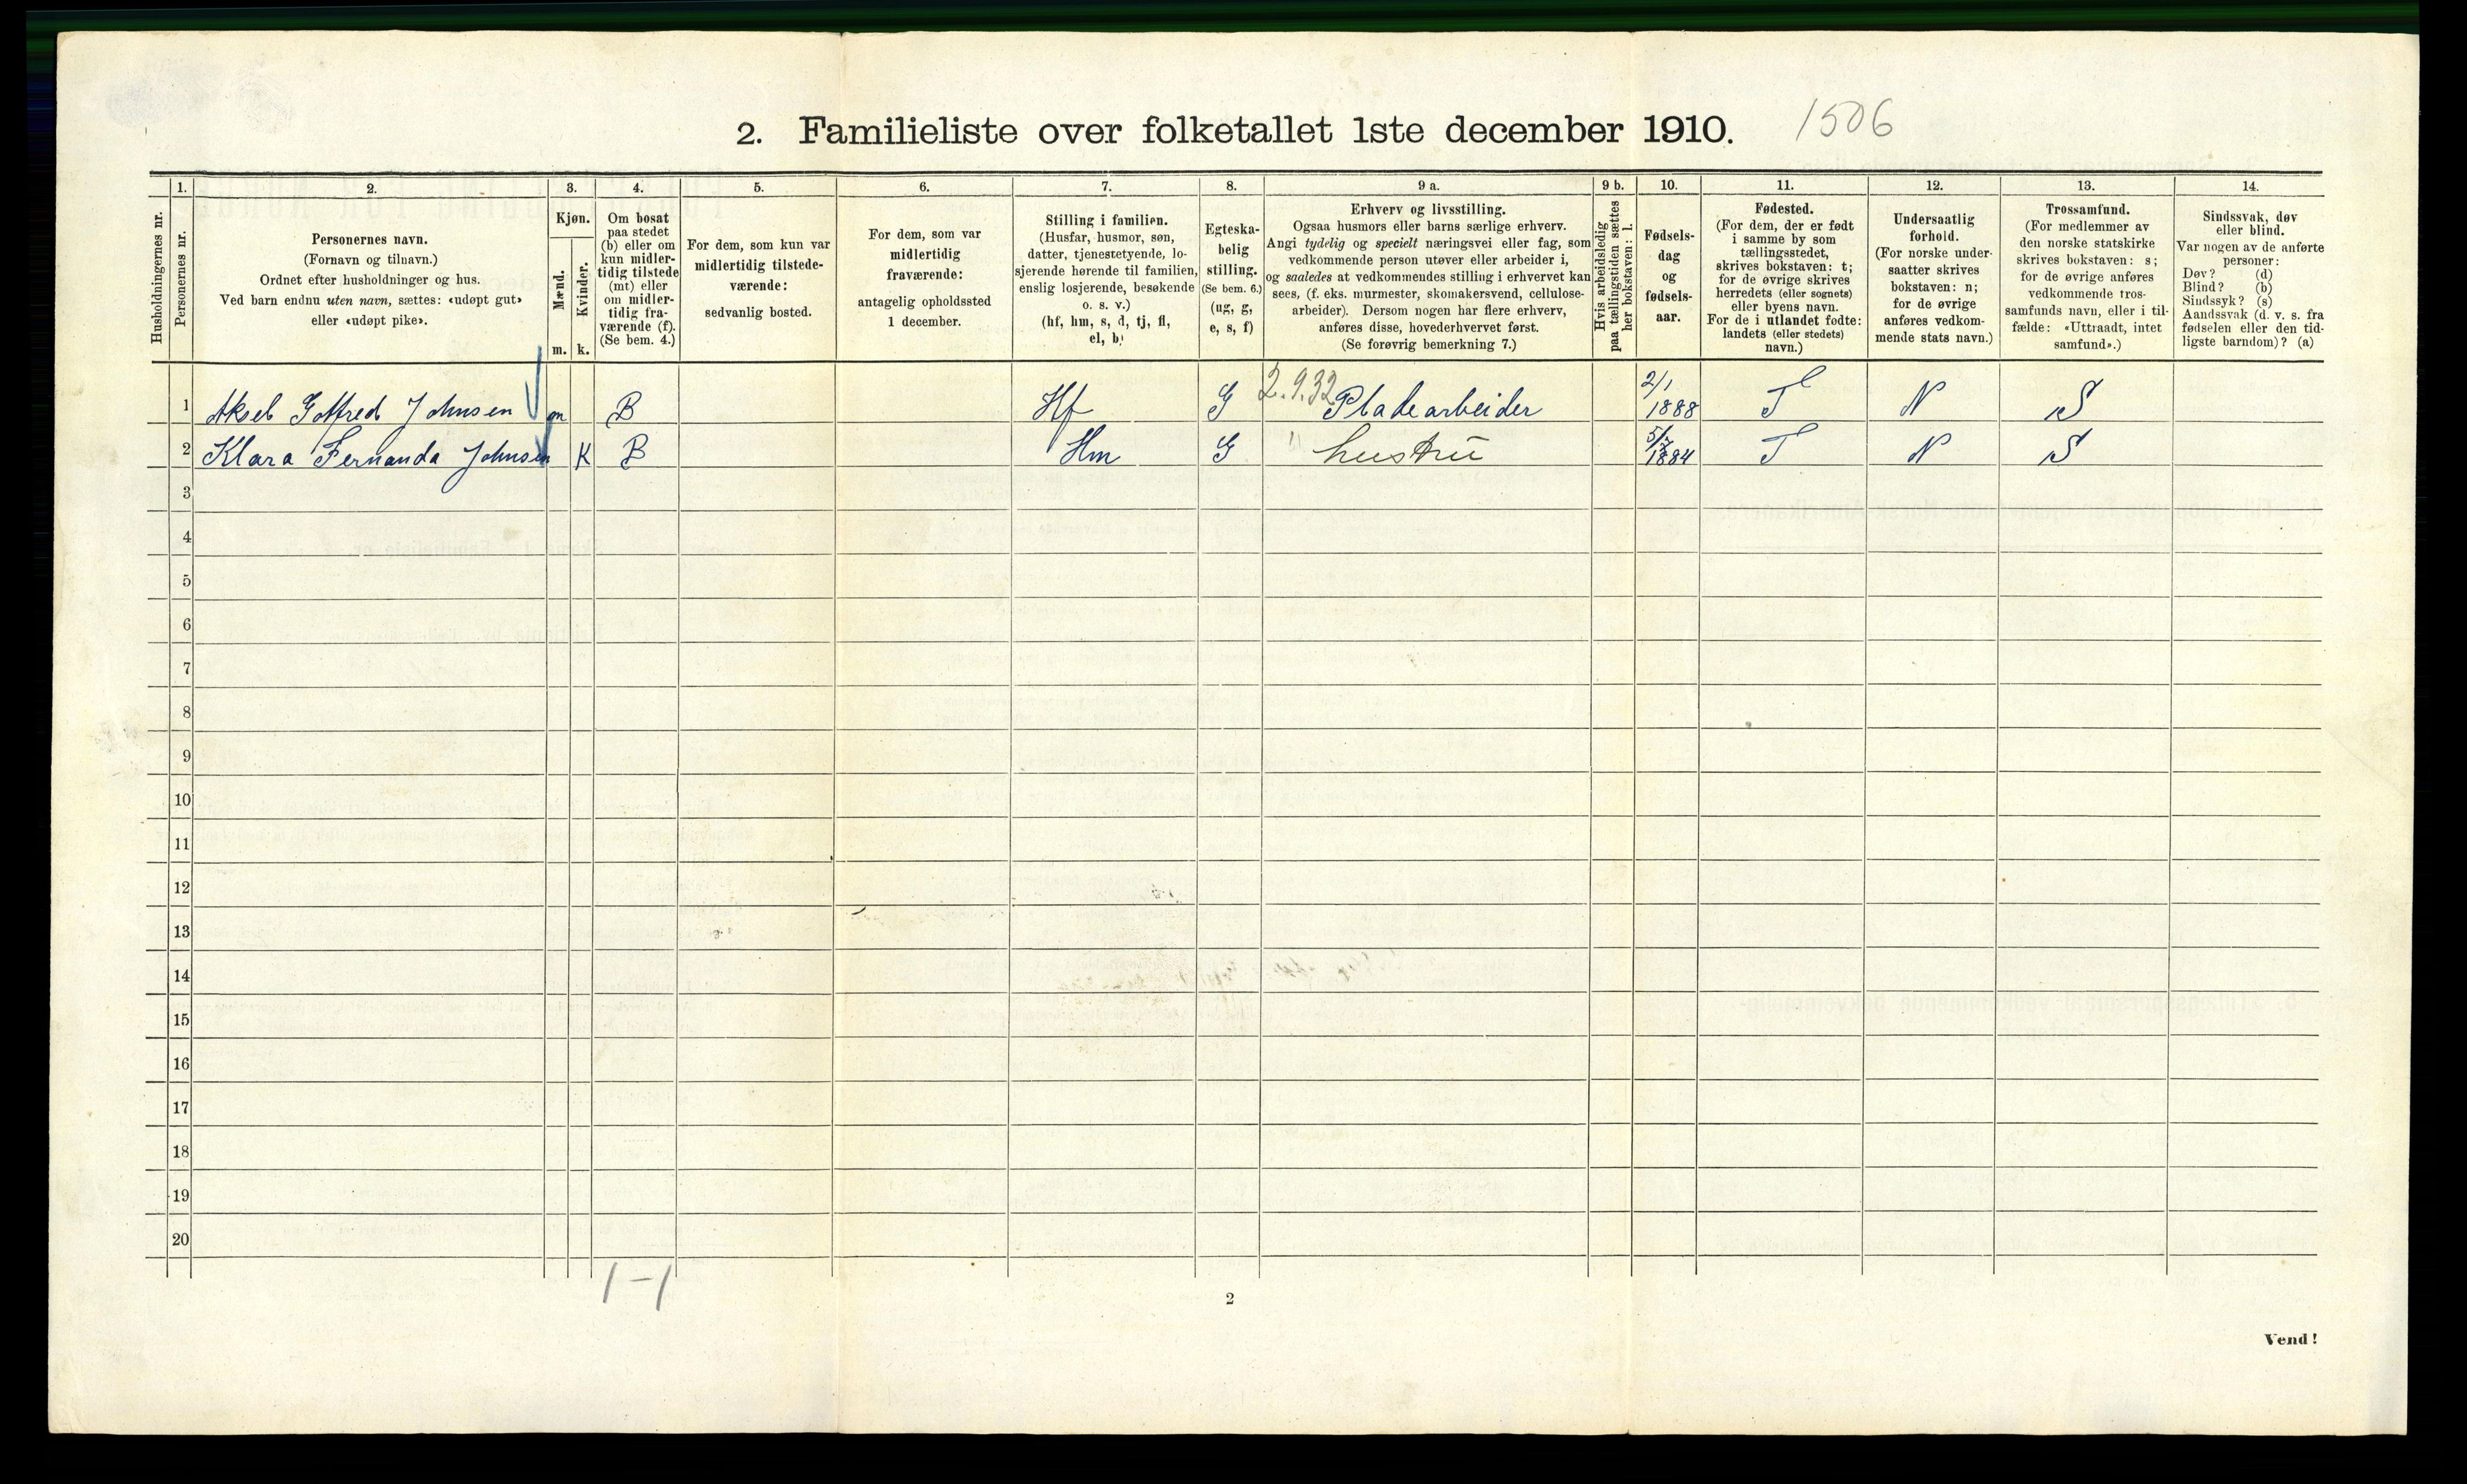 2. Familieliste over folketallet 1ste december 1910. 1506
Husholdningernes nr.
1.
Personernes nr.
2.
Personernes navn.
(Fornavn og tilnavn.)
Ordnet efter husholdninger og hus.
Ved barn endnu uten navn, sættes: «udøpt gut»
eller «udøpt pike».
3.
Kjøn.
Mænd.
Kvinder.
m. k.
4.
Om bosat
paa stedet
(b) eller om
kun midler-
tidig tilstede
(mt) eller
om midler-
tidig fra-
værende (f).
(Se bem. 4.)
5.
For dem, som kun var
midlertidig tilstede-
værende:
sedvanlig bosted.
6.
For dem, som var
midlertidig
fraværende:
antagelig opholdssted
1 december.
7.
Stilling i familien.
(Husfar, husmor, søn,
datter, tjenestetyende, lo-
sjerende hørende til familien,
enslig losjerende, besøkende
o. s. v.)
(hf, hm, s, d, tj, fl,
el, b)
8.
Egteska-
belig
stilling.
(Se bem. 6.)
(ug, g,
e, s, f)
9 a.
Erhverv og livsstilling.
Ogsaa husmors eller barns særlige erhverv.
Angi tydelig og specielt næringsvei eller fag, som
vedkommende person utøver eller arbeider i,
og saaledes at vedkommendes stilling i erhvervet kan
sees, (f. eks. murmester, skomakersvend, cellulose-
arbeider). Dersom nogen har flere erhverv,
anføres disse, hovederhvervet først.
(Se forøvrig bemerkning 7.)
9 b.
Hvis arbeidsledig
paa tællingstiden sættes
her bokstaven: l.
10.
Fødsels-
dag
og
fødsels-
aar.
11.
Fødested.
(For dem, der er født
i samme by som
tællingsstedet,
skrives bokstaven: t;
for de øvrige skrives
herredets (eller sognets)
eller byens navn.
For de i utlandet fødte:
landets (eller stedets)
navn.)
12.
Undersaatlig
forhold.
(For norske under-
saatter skrives
bokstaven: n;
for de øvrige
anføres vedkom-
mende stats navn.)
13.
Trossamfund.
(For medlemmer av
den norske statskirke
skrives bokstaven: s;
for de øvrige anføres
vedkommende tros-
samfunds navn, eller i til-
fælde: «Uttraadt, intet
samfund».)
14.
Sindssvak, døv
eller blind.
Var nogen av de anførte
personer:
Døv? (d)
Blind? (b)
Sindssyk? (s)
Aandssvak (d. v. s. fra
fødselen eller den tid-
ligste barndom)? (a)
1 Aksel Gotfred Johnsen m B Hf G 2.9.32 Pladearbeider 2/1 1888 T N S
2 Klara Fernanda Johnsen K B Hm G hustru 5/7 1884 T N S
3
4
5
6
7
8
9
10
11
12
13
14
15
16
17
18
19
20
1-1
2
Vend!